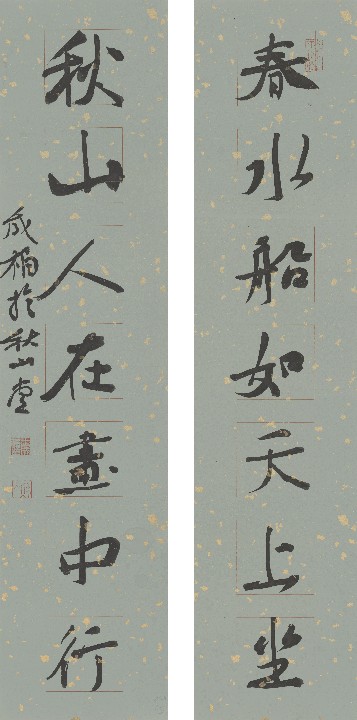 春水船如天上坐
秋山人在畫中行
於秋山堂